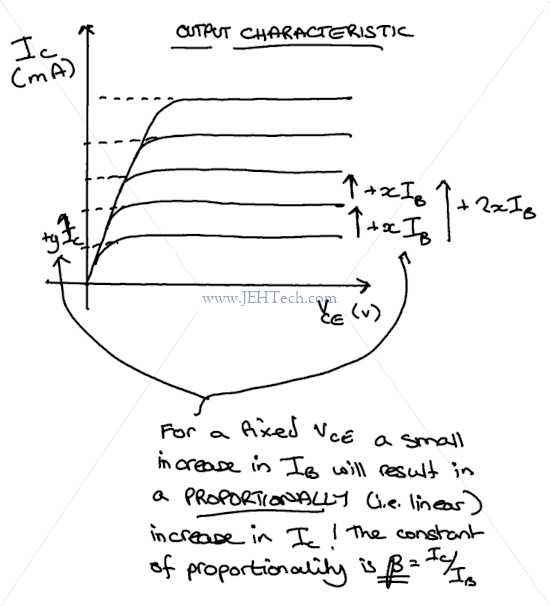 OUTPUT CHARACTERISTIC
Ic
(mA)
+xIB
+xIB
+2xIB
+yIc
www.JEHTech.com
VCE (v)
For a fixed VCE a small
increase in IB will result in
a PROPORTIONALLY (i.e. linear)
increase in Ic! The constant
of proportionality is β = Ic/IB